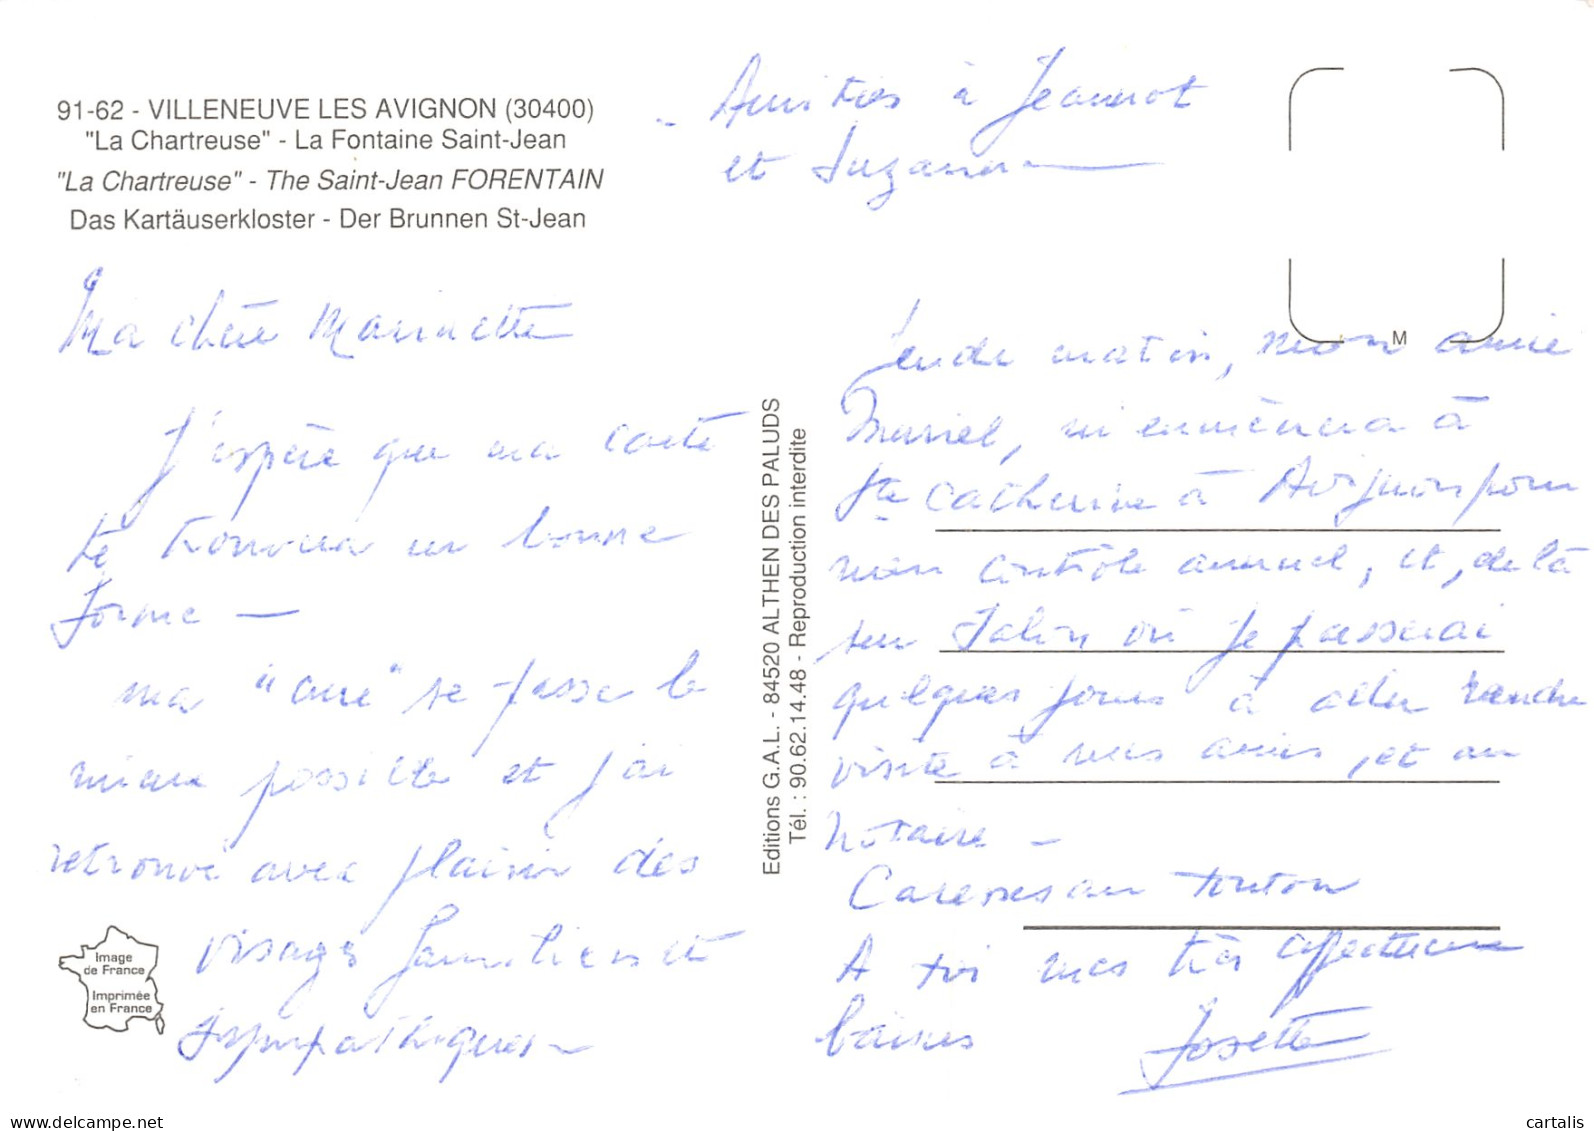 91-62 - VILLENEUVE LES AVIGNON (30400)
"La Chartreuse" - La Fontaine Saint-Jean
"La Chartreuse" - The Saint-Jean FORENTAIN
Das Kartäuserkloster - Der Brunnen St-Jean
- Amitiés à Jeannot
et Suzanne
Ma chère Marinette
J'espère que ma carte
te trouvera en bonne
forme —
ma "cure" se passe le
mieux possible et j'ai
retrouvé avec plaisir des
visages familiers et
sympathiques —
Editions G.A.L. - 84520 ALTHEN DES PALUDS
Tél. : 90.62.14.48 - Reproduction interdite
M
matin, mon amie
Muriel, m'emmènera à
Ste Catherine à Avignon pour
mon contrôle annuel, et, de là
sur Salon où je passerai
quelques jours à aller rendre
visite à mes amis, et au
notaire —
Caresses au tonton
A toi mes très affectueux
baisers Josette
Image
de France
Imprimée
en France
www.delcampe.net
cartalis